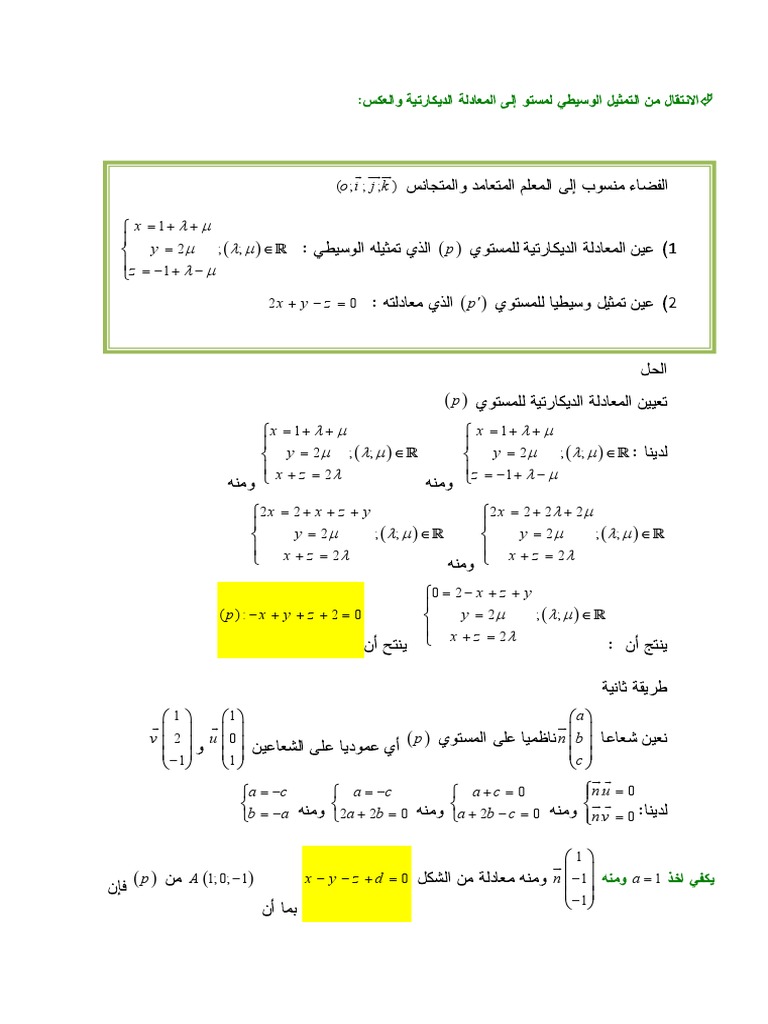 الانتقال من التمثيل الوسيطي لمستو إلى المعادلة الديكارتية والعكس:
الفضاء منسوب إلى المعلم المتعامد والمتجانس (o; i⃗; j⃗; k⃗)
1) عين المعادلة الديكارتية للمستوي (p) الذي تمثيله الوسيطي : { x = 1+λ+μ ; y = 2μ ; z = −1+λ−μ ;(λ;μ)∈ℝ
2) عين تمثيل وسيطيا للمستوي (p′) الذي معادلته : 2x + y − z = 0
الحل
تعيين المعادلة الديكارتية للمستوي (p)
لدينا : { x = 1+λ+μ ; y = 2μ ; z = −1+λ−μ ;(λ;μ)∈ℝ ومنه { x = 1+λ+μ ; y = 2μ ; x + z = 2λ ;(λ;μ)∈ℝ ومنه
{ 2x = 2+2λ+2μ ; y = 2μ ; x + z = 2λ ;(λ;μ)∈ℝ ومنه { 2x = 2+x+z+y ; y = 2μ ; x + z = 2λ ;(λ;μ)∈ℝ
ينتج أن : { 0 = 2−x+z+y ; y = 2μ ; x + z = 2λ ;(λ;μ)∈ℝ ينتج أن (p): −x + y + z + 2 = 0
طريقة ثانية
نعين شعاعا n⃗ (a b c) ناظميا على المستوي (p) أي عموديا على الشعاعين u⃗ (1 0 1) و v⃗ (1 2 −1)
لدينا: { n⃗u⃗ = 0 ; n⃗v⃗ = 0 ومنه { a + c = 0 ; a + 2b − c = 0 ومنه { a = −c ; 2a + 2b = 0 ومنه { a = −c ; b = −a
يكفي اخذ a = 1 ومنه n⃗ (1 −1 −1) ومنه معادلة من الشكل x − y − z + d = 0 بما أن A(1;0;−1) من (p) فإن